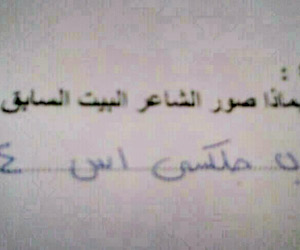 :
ماذا صور الشاعر البيت السابق
جلكسي اس ٤